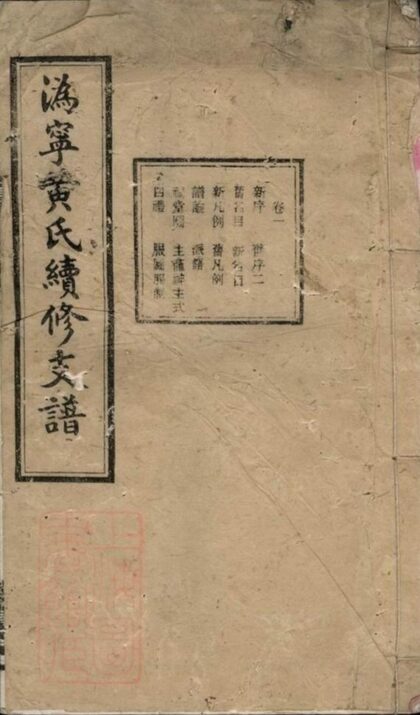 溈寧黃氏續修支譜
卷一
新序 舊序二
舊名目 新名目
新凡例 舊凡例
譜論 派緒
祠堂圖 主龕神主式
四禮 服圖服制